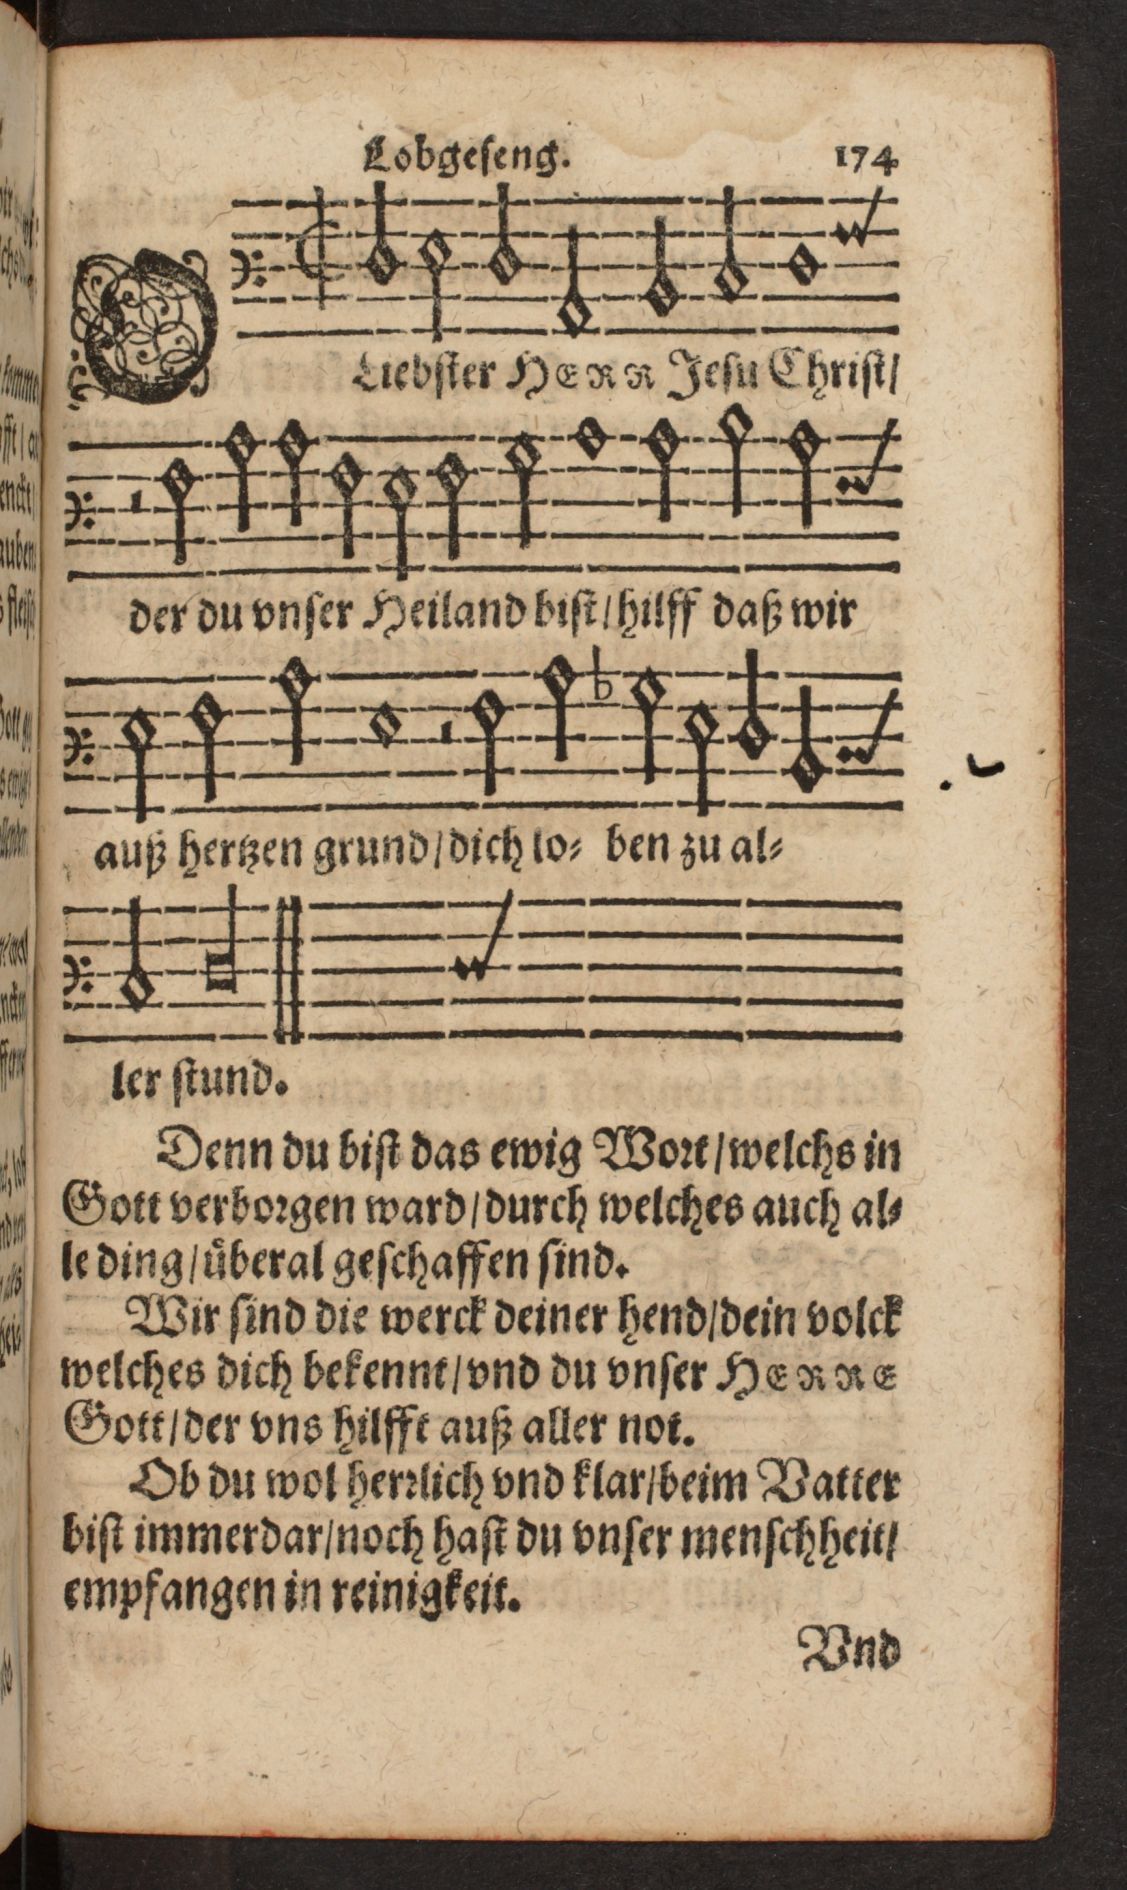 Lobgeseng. 174
O Liebster HERR Jesu Christ/
der du vnser Heiland bist/hilff daß wir
auß hertzen grund/dich lo⸗ ben zu al⸗
ler stund.
Denn du bist das ewig Wort/welchs in
Gott verborgen ward/durch welches auch al⸗
le ding/uͤberal geschaffen sind.
Wir sind die werck deiner hend/dein volck
welches dich bekennt/vnd du vnser HERRE
Gott/der vns hilfft auß aller not.
Ob du wol herrlich vnd klar/beim Vatter
bist immerdar/noch hast du vnser menschheit/
empfangen in reinigkeit.
Vnd